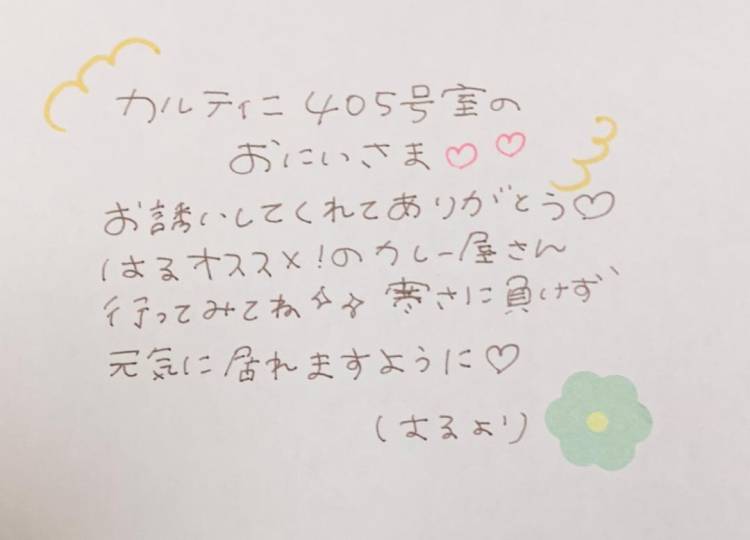 カルティニ 405号室の
おにいさま♡♡
お誘いしてくれてありがとう♡
はるオススメ!のカレー屋さん
行ってみてね✧✧ 寒さに負けず
元気に居れますように♡
はるより